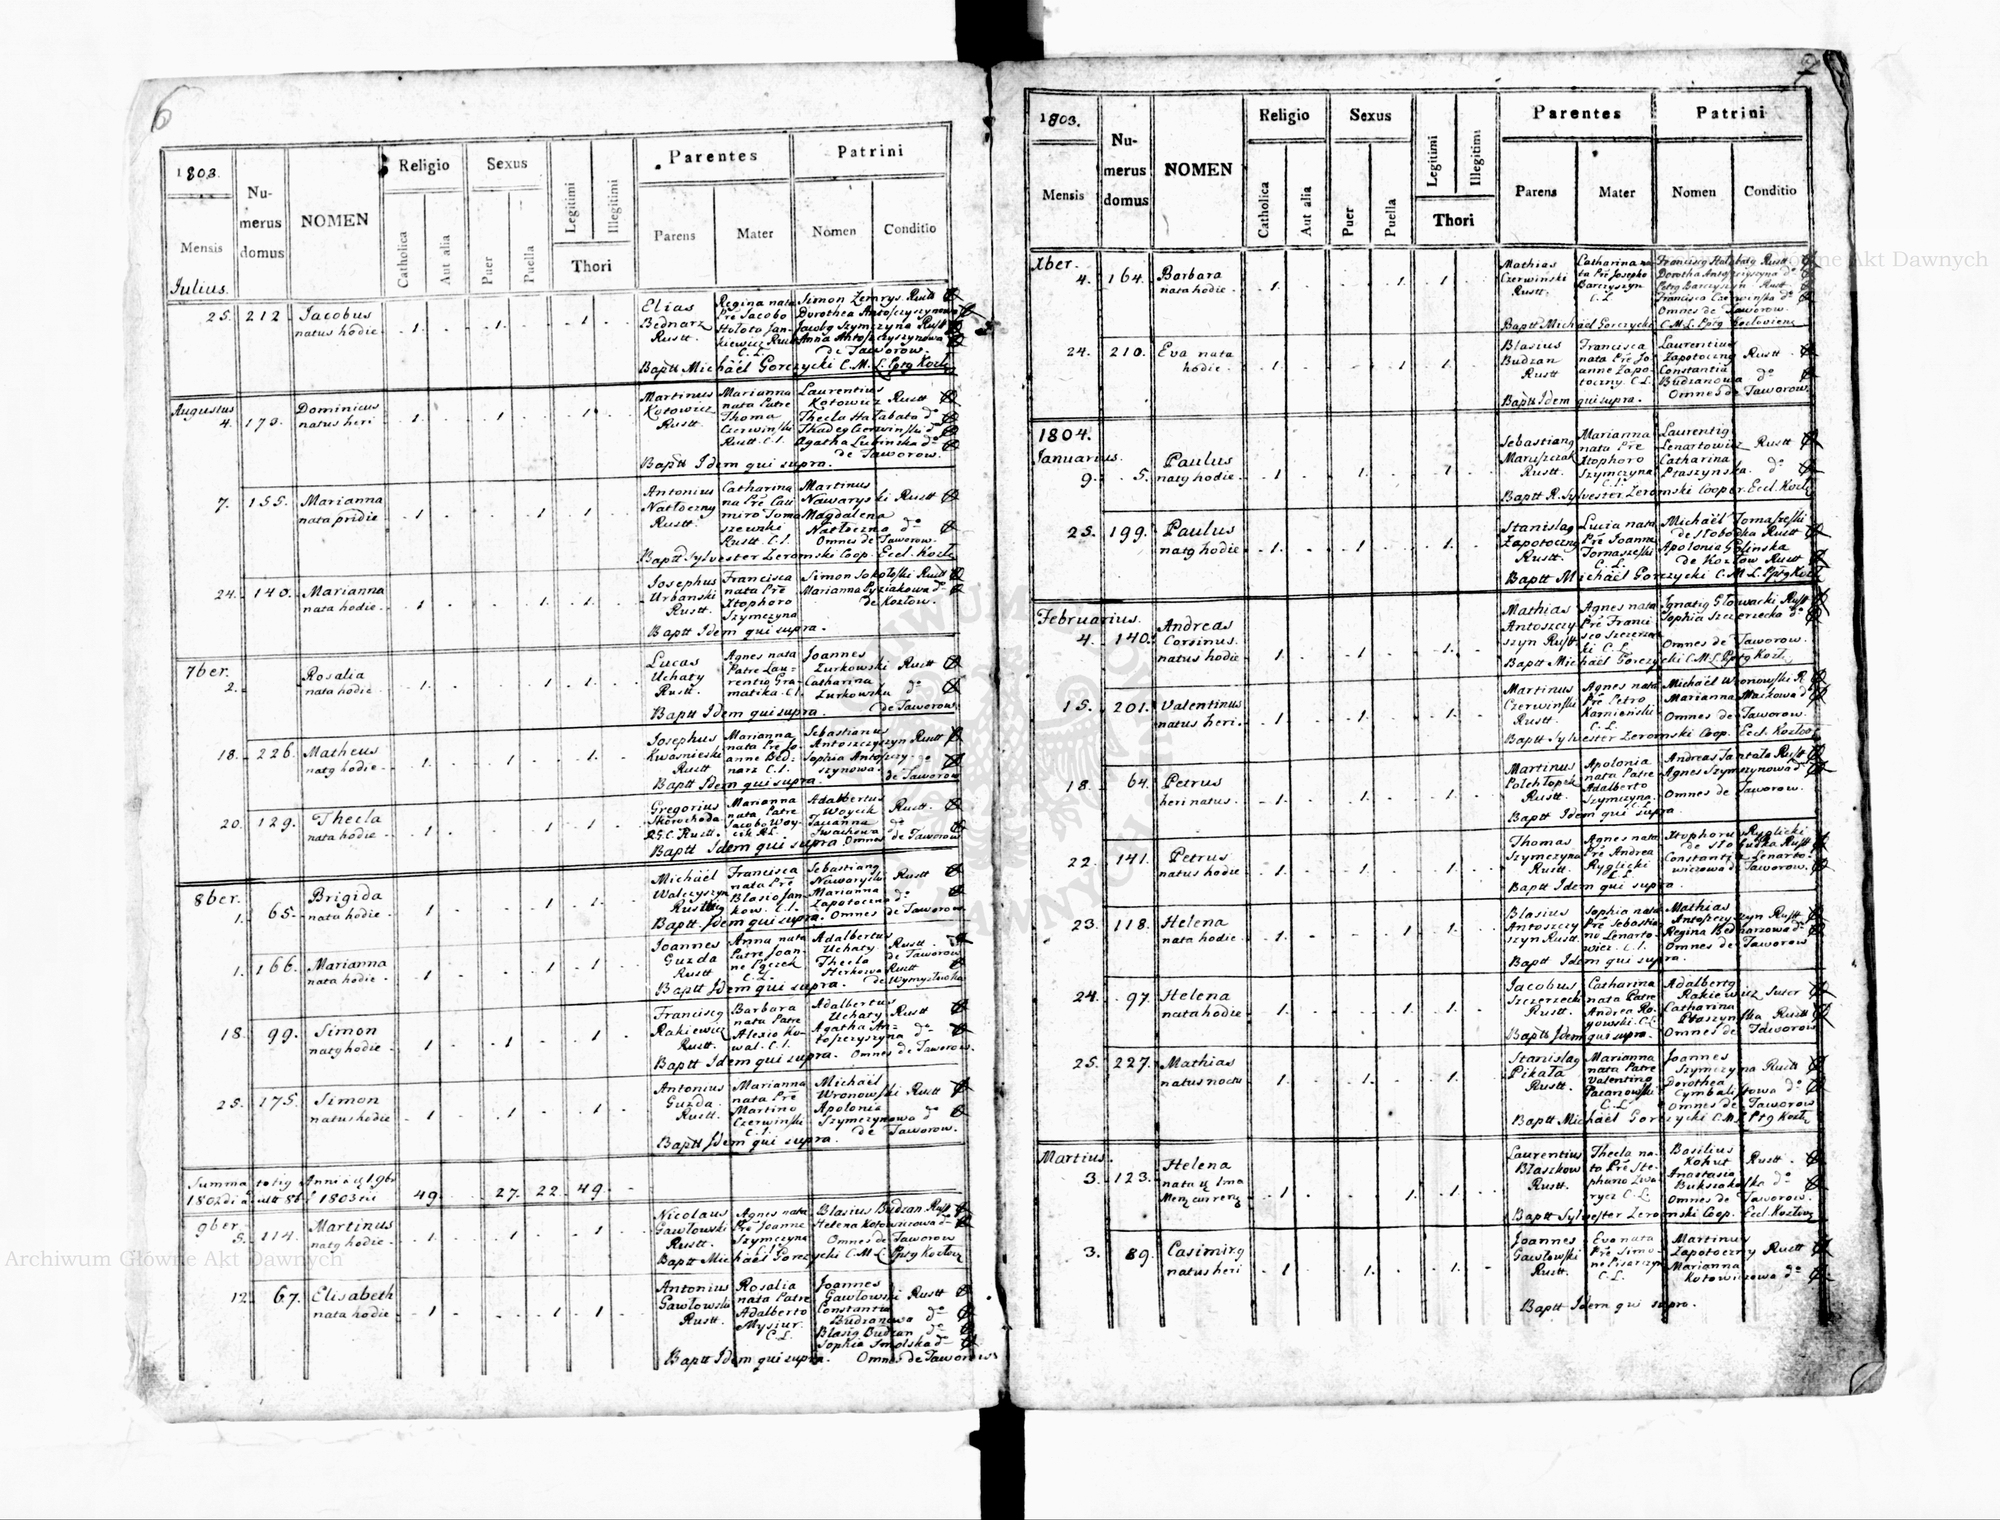 6
1803.
Mensis
Numerus domus
NOMEN
Religio
Catholica
Aut alia
Sexus
Puer
Puella
Legitimi
Illegitimi
Thori
Parentes
Parens
Mater
Patrini
Nomen
Conditio
Julius.
25. 212. Jacobus
natus hodie
1. 1. 1.
Elias
Bednarz
Rustt.
Regina nata
Pre Jacobo
Simon Zemrys Rustt
Dorothea Antoszczyszynowa
Anna Antoszczyszynowa
de Jaworow.
Baptt Michaël Gorczycki C. M. L. Pptg Kozl
Augustus
4. 173. Dominicus
natus heri
1. 1. 1.
Martinus
Kotowicz
Rustt.
Marianna
nata Patre
Thoma
Czerwinski
Rustt. C. L.
Laurentius
Kotowicz Rustt
Thecla Hałabała do
Agatha Lubinska do
de Jaworow.
Baptt Idem qui supra.
7. 155. Marianna
nata pridie
1. 1. 1.
Antonius
Natłoczny
Rustt.
Catharina
na Pre Casi
miro Toma
szewski
Rustt. C. L.
Martinus
Nawarynski Rustt
Magdalena
Natłoczna do
Omnes de Jaworow.
Baptt Sylvester Zeromski Coop. Eccl. Kozł
24. 140. Marianna
nata hodie
1. 1. 1.
Josephus
Urbanski
Rustt.
Francisca
nata Pre
Xtophoro
Szymczyna
Simon Sokołoski Rustt
Marianna
de Kozłow.
Baptt Idem qui supra.
7ber.
2. Rosalia
nata hodie
1. 1. 1.
Lucas
Uchaty
Rustt.
Agnes nata
Patre Lau-
rentio Gra-
matika C. L.
Joannes
Zurkowski Rustt
Catharina
Zurkowska do
de Jaworow
Baptt Idem qui supra.
18. 226. Matheus
natg hodie
1. 1. 1.
Josephus
Kwasnieski
Rustt
Marianna
nata Pre Jo
anne Bed-
narz C. L.
Sebastianus
Antoszczyszyn Rustt
Sophia Antoszczy-
szynowa
de Jaworow
Baptt Idem qui supra.
20. 129. Thecla
nata hodie
1. 1. 1.
Gregorius
Skorochoda
R.G.C. Rustt.
Marianna
nata Patre
Jacobo Woy-
cik
Adalbertus
Woycik Rustt.
Iwachowa
de Jaworow
Baptt Idem qui supra Omnes
8ber.
1. 65. Brigida
nata hodie
1. 1. 1.
Michaël
Walczyszyn
Francisca
nata Pre
Blasio Jan-
kow. C. L.
Sebastiang
Naworyski Rustt
Marianna
Zapotoczna do
Baptt. Idem qui supra. Omnes de Jaworow
1. 166. Marianna
nata hodie
1. 1. 1.
Joannes
Guzda
Rustt
Anna nata
Patre Joan-
ne
C. L.
Adalbertus
Uchaty Rustt
de Jaworow
Thecla
Herkowa Rustt
Baptt Idem qui supra.
18. 99. Simon
natg hodie
1. 1. 1.
Franciscg
Rakiewicz
Rustt.
Barbara
nata Patre
Alexio Ko-
wal. C. L.
Adalbertus
Uchaty Rustt
Agatha An-
toszczyszyna do
Baptt Idem qui supra. Omnes de Jaworow
25. 175. Simon
natus hodie
1. 1. 1.
Antonius
Guzda
Rustt.
Marianna
nata Pre
Martino
Czerwinski
C. L.
Michaël
Wronowski Rustt
Apolonia
Szymczynowa do
de Jaworow.
Baptt Idem qui supra.
1803
49. 27. 22. 49.
9ber
5. 114. Martinus
natg hodie
1. 1. 1.
Nicolaus
Gawłowski
Rustt.
Agnes nata
Pre Joanne
Szymczyna
Blasius Budzan Rustt
Helena Kotowiczowa do
Omnes de Jaworow
Baptt Michaël Gorczycki C. M. L. Pptg Kozlow
12. 67. Elisabeth
nata hodie
1. 1. 1.
Antonius
Gawłowski
Rustt.
Rosalia
nata Patre
Adalberto
Mysiur
C. L.
Joannes
Gawłowski Rustt
Constantia
Budzanowa do
Blasig Budzan do
Sophia Smolska do
Baptt Idem qui supra. Omnes de Jaworow
7
1803.
Mensis
Numerus domus
NOMEN
Religio
Catholica
Aut alia
Sexus
Puer
Puella
Legitimi
Illegitimi
Thori
Parentes
Parens
Mater
Patrini
Nomen
Conditio
Xber.
4. 164. Barbara
nata hodie
1. 1. 1.
Mathias
Czerwinski
Rustt.
Catharina na
ta Pre Josepho
Barczyszyn
C. L.
Petrg Barczyszyn Rustt
Francisca Czerwinska do
Omnes de Jaworow.
Baptt Michaël Gorczycki C. M. L. Pptg Kozloviens
24. 210. Eva nata
hodie
1. 1. 1.
Blasius
Budzan
Rustt
Francisca
nata Pre Jo-
anne Zapo-
toczny. C. L.
Laurentius
Zapotoczny Rustt
Constantia
Budzanowa do
Omnes de Jaworow
Baptt Idem qui supra.
1804.
Januarius.
9. 5. Paulus
natg hodie
1. 1. 1.
Sebastiang
Maruszczak
Rustt.
Marianna
nata Pre
Xtophoro
Szymczyna
C. L.
Laurentig
Lenartowicz Rustt
Catharina
Ptaszynska. do
Baptt R. Sylvester Zeromski Cooper. Eccl. Kozł
25. 199. Paulus
natg hodie
1. 1. 1.
Stanislag
Zapotoczng
Rustt.
Lucia nata
Pre Joanne
Tomaszeski
C. L.
Michaël Tomaszeski
de Słobodka Rustt
Apolonia Golinska
de Kozłow Rustt
Baptt Michaël Gorczycki C. M. L. Pptg Kozl
Februarius.
4. 140. Andreas
Corsinus.
natus hodie
1. 1. 1.
Mathias
Antoszczy
szyn Rustt
Agnes nata
Pre Franci
sco Szczerze
ki C. L.
Ignatig Głowacki Rustt
Sophia Szczerzecka do
Omnes de Jaworow.
Baptt Michaël Gorczycki C. M. L. Pptg Kozl.
15. 201. Valentinus
natus heri.
1. 1. 1.
Martinus
Czerwinski
Rustt.
Agnes nata
Pre Petro
Kamienski
C. L.
Michaël Wronowski R
Marianna
Omnes de Jaworow.
Baptt Sylvester Zeromski Coop. Eccl. Kozlov
18. 64. Petrus
heri natus.
1. 1. 1.
Martinus
Polchłopek
Rustt.
Apolonia
nata Patre
Adalberto
Szymczyna.
C. L.
Andreas Jantała Rustt
Agnes Szymczynowa do
Omnes de Jaworow.
Baptt Idem qui supra
22. 141. Petrus
natus hodie
1. 1. 1.
Thomas
Szymczyna
Rustt.
Agnes nata
Pre Andrea
Ryglicki
C. L.
Xtophorus Ryglicki
de Słobutka Rustt
Constantia Lenarto-
wiczowa de Jaworow.
Baptt Idem qui supra.
23. 118. Helena
nata hodie
1. 1. 1.
Blasius
Antoszczy
szyn Rustt.
Sophia nata
Pre Sebastia
no Lenarto-
wicz. C. L.
Mathias
Antoszczyszyn Rustt
Regina Bednarzowa do
Omnes de Jaworow
Baptt Idem qui supra.
24. 97. Helena
nata hodie
1. 1. 1.
Jacobus
Szczerzecki
Rustt.
Catharina
nata Patre
Andrea Ro-
gowski. C. L.
Adalbertg
Rakiewicz Sutor
Catharina
Ptaszynska Rustt
Omnes de Jaworow
Baptt Idem qui supra.
25. 227. Mathias
natus noctu
1. 1. 1.
Stanislag
Pikała
Rustt.
Marianna
nata Patre
Valentino
Pacanowski
C. L.
Joannes
Szymczyna Rustt
Dorothea
Cymbalistowa do
Omnes de Jaworow
Baptt Michaël Gorczycki C. M. L. Pptg Kozł
Martius.
3. 123. Helena
nata 1ma
Mens currens
1. 1. 1.
Laurentius
Błaszkow
Rustt.
Thecla na-
ta Pre Ste-
phano
C. L.
Basilius
Kohut Rustt.
Anastasia
Omnes de Jaworow.
Baptt Sylvester Zeromski Coop. Eccl. Kozlov
3. 89. Casimirg
natus heri
1. 1. 1.
Joannes
Gawłowski
Rustt.
Eva nata
Pre Simo-
ne Pisarczyn
C. L.
Martinus
Zapotoczny Rustt
Marianna
Kotowiczowa do
Baptt Idem qui supra.
Archiwum Główne Akt Dawnych